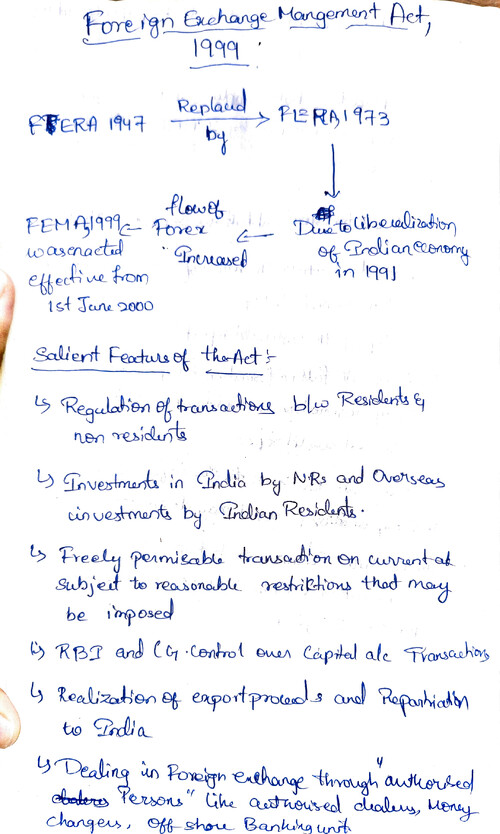 Foreign Exchange Mangement Act,
1999 :
FERA 1947 Replaced by FERA, 1973
Due to liberalization
of Indian economy
in 1991
flow of
Forex
Increased
FEMA, 1999
was enacted
effective from
1st June 2000
Salient Feature of the Act :-
↳ Regulation of transactions b/w Residents &
non residents
↳ Investments in India by NRs and Overseas
investments by Indian Residents.
↳ Freely permisable transaction on current a/c
subject to reasonable restriktions that may
be imposed
↳ RBI and CG. Control over Capital a/c Transactions
↳ Realization of export proceeds and Repatriation
to India
↳ Dealing in Foreign exchange through "authorised
Persons" like authorised dealers, Money
changers, off shore Banking unit